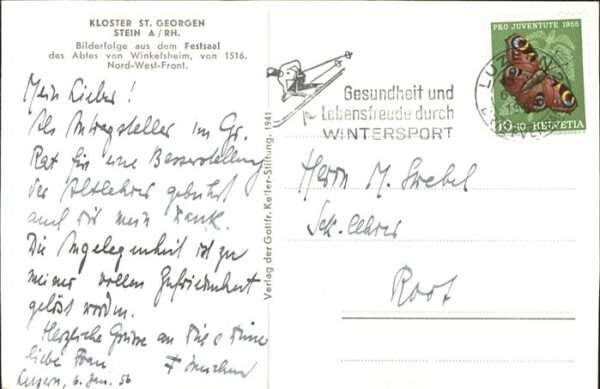 KLOSTER ST. GEORGEN
STEIN A/RH.
Bilderfolge aus dem Festsaal
des Abtes von Winkelsheim, von 1516.
Nord-West-Front.
Mein Lieber!
Als Antragsteller im Gr.
Rat für eine Besserstellung
der Altlehrer gebührt
auch Dir mein Dank.
Die Angelegenheit ist zu
meiner vollen Zufriedenheit
gelöst worden.
Herzliche Grüsse an Dich & Deine
liebe Frau
Luzern, 6. Jan. 56
Verlag der Gottfr. Keller-Stiftung. 1941
PRO JUVENTUTE 1955
LUZERN
10+10 HELVETIA
Gesundheit und
Lebensfreude durch
WINTERSPORT
Herrn M. Strebel
Sek. lehrer
Root